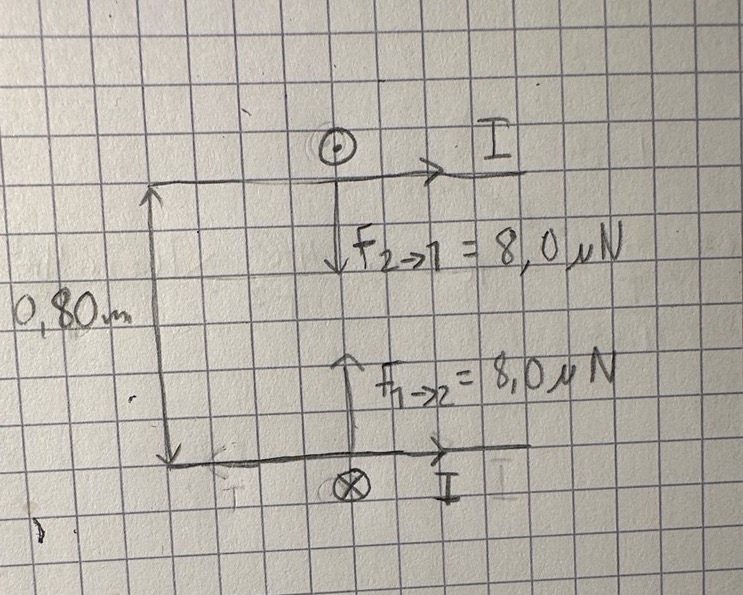 I
F2→1 = 8,0 µN
0,80m
F1→2 = 8,0 µN
I I I